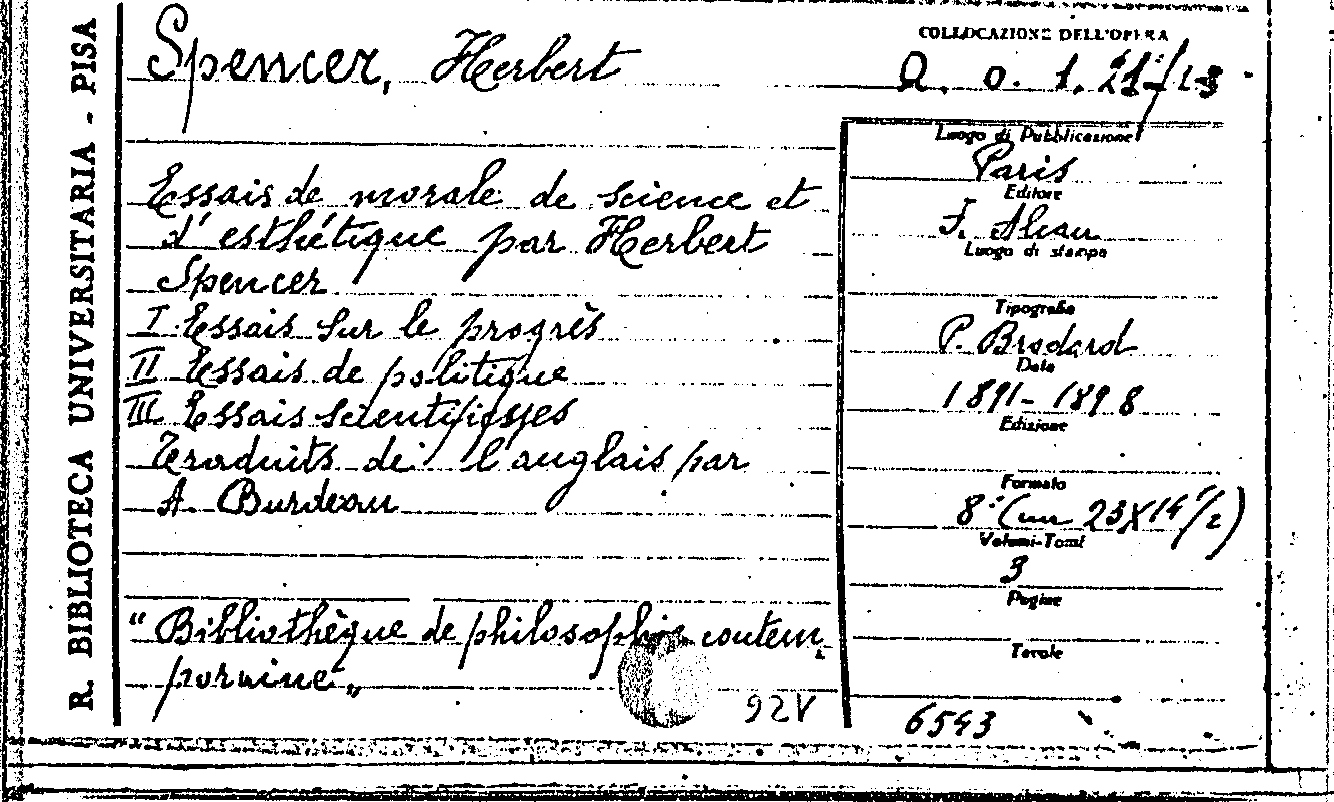 R. BIBLIOTECA UNIVERSITARIA - PISA
Spencer, Herbert
COLLOCAZIONE DELL'OPERA
Q. o. 1. 21-23
Essais de morale de science et
d'esthétique par Herbert
Spencer
I Essais sur le progrès
II Essais de politique
III Essais scientifiques
Traduits de l'anglais par
A. Burdeau
"Bibliothèque de philosophie contem,
poraine"
92V
Luogo di Pubblicazione
Paris
Editore
F. Alcan
Luogo di stampa
Tipografia
P. Brodard
Data
1891-1898
Edizione
Formato
8° (cm 23X14 1/2)
Volumi-Tomi
3
Pagine
Tavole
6543